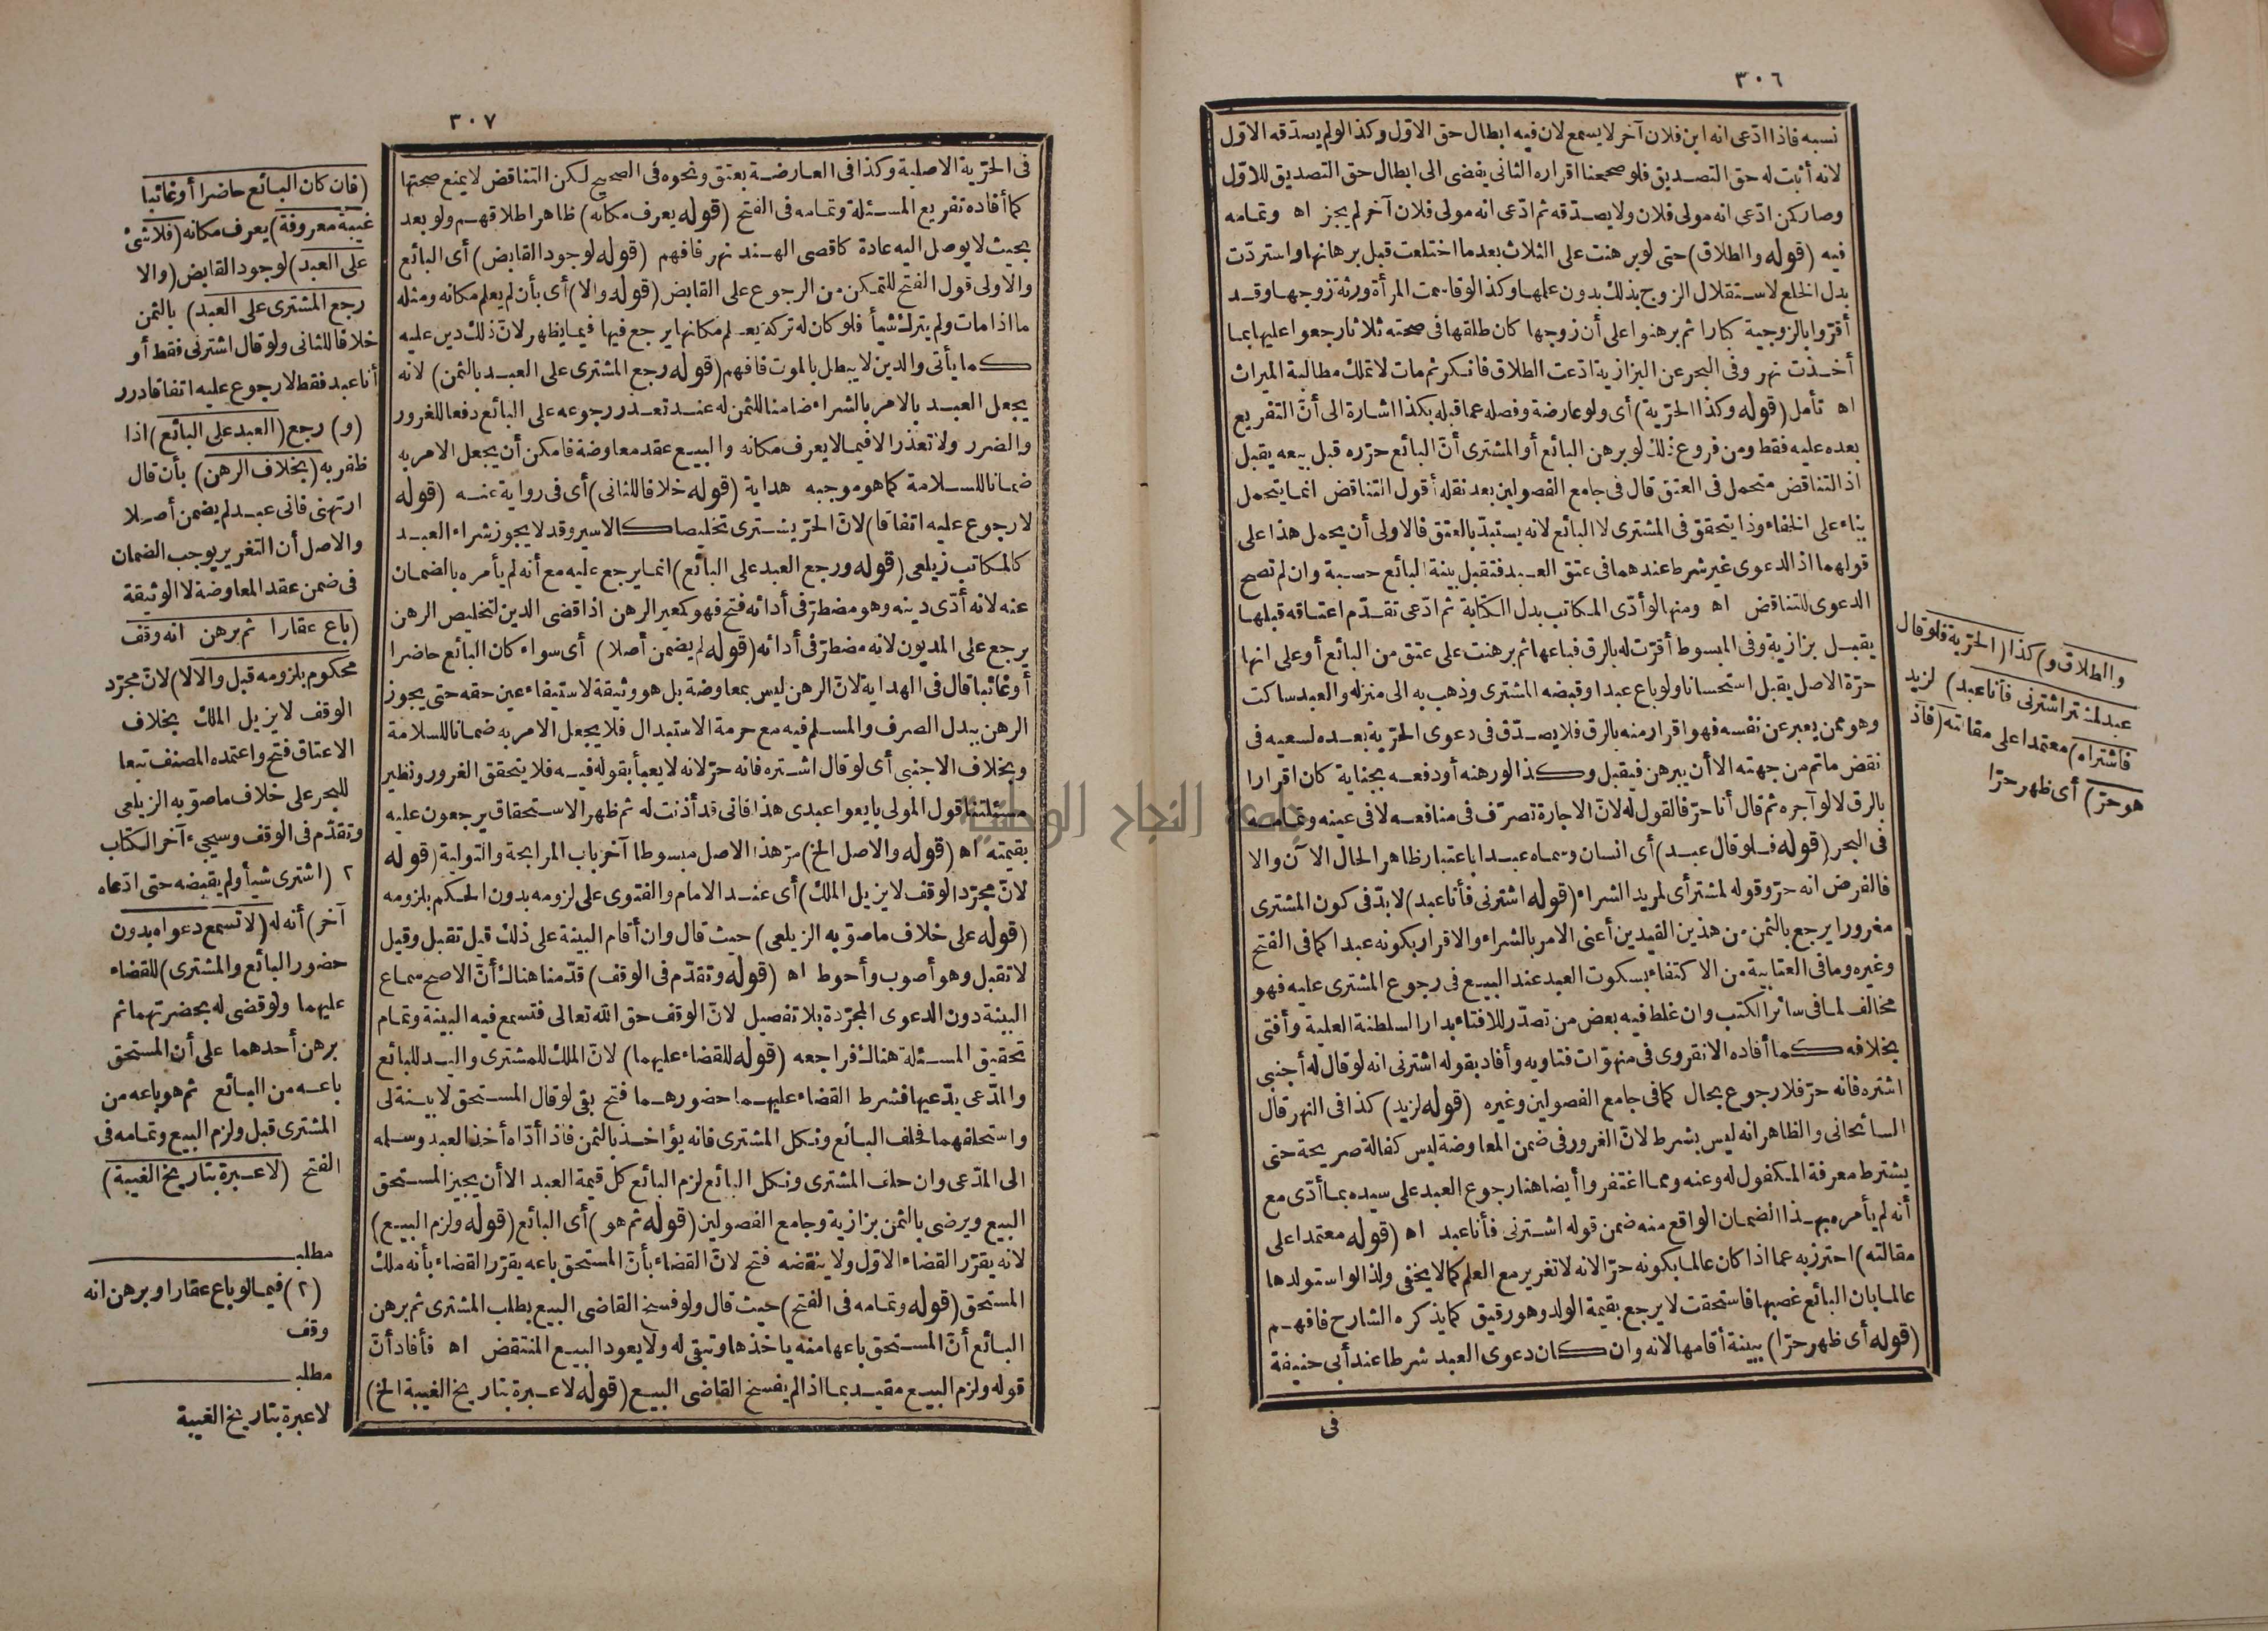 ٣٠٦
نسبه فاذا ادّعى انه ابن فلان آخر لا يسمع لان فيه ابطال حق الاوّل وكذا لو لم يصدّقه الاوّل
لانه أثبت له حق التصديق فلو صححنا اقراره الثانى يفضى الى ابطال حق التصديق للاوّل
وصار كمن ادّعى انه مولى فلان ولا يصدّقه ثم ادّعى انه مولى فلان آخر لم يجز اه وتمامه
فيه (قوله والطلاق) حتى لو برهنت على الثلاث بعد ما اختلعت قبل برهانها واستردّت
بدل الخلع لاستقلال الزوج بذلك بدون علمها وكذا لو قاسمت المرأة ورثة زوجها وقد
أقرّوا بالزوجية كبارا ثم برهنوا على أن زوجها كان طلقها فى صحته ثلاثا رجعوا عليها بما
أخذت نهر وفى البحر عن البزازية ادّعت الطلاق فانكر ثم مات لا تملك مطالبة الميراث
اه تأمل (قوله وكذا الحرّية) أى ولو عارضة وفصله عما قبله بكذا اشارة الى أنّ التفريع
بعده عليه فقط ومن فروع ذلك لو برهن البائع أو المشترى أنّ البائع حرّره قبل بيعه يقبل
اذ التناقض متحمل فى العتق قال فى جامع الفصولين بعد نقله أقول التناقض انما يتحمل
بناء على الخفاء وذا يتحقق فى المشترى لا البائع لانه يستبدّ بالعتق فالاولى أن يحمل هذا على
قولهما اذ الدعوى غير شرط عندهما فى عتق العبد فتقبل بينة البائع حسبة وان لم تصح
الدعوى للتناقض اه ومنها لو أدّى المكاتب بدل الكتابة ثم ادّعى تقدّم اعتاقه قبلها
يقبل بزازية وفى المبسوط أقرّت له بالرق فباعها ثم برهنت على عتق من البائع أو على انها
حرّة الاصل يقبل استحسانا ولو باع عبدا وقبضه المشترى وذهب به الى منزله والعبد ساكت
وهو ممن يعبر عن نفسه فهو اقرار منه بالرق فلا يصدّق فى دعوى الحرّية بعده لسعيه فى
نقض ما تم من جهته الا أن يبرهن فيقبل وكذا لو رهنه أو دفعه بجناية كان اقرارا
بالرق لا لو آجره ثم قال أنا حرّ فالقول له لانّ الاجارة تصرّف فى منافعه لا فى عينه وتمامه
فى البحر (قوله فلو قال عبد) أى انسان وسماه عبدا باعتبار ظاهر الحال الآن والا
فالفرض انه حرّ وقوله لمشتر أى لمريد الشراء (قوله اشترنى فأنا عبد) لا بدّ فى كون المشترى
مغرورا يرجع بالثمن من هذين القيدين أعنى الامر بالشراء والاقرار بكونه عبدا كما فى الفتح
وغيره وما فى العتابية من الاكتفاء بسكوت العبد عند البيع فى رجوع المشترى عليه فهو
مخالف لما فى سائر الكتب وان غلط فيه بعض من تصدّر للافتاء بدار السلطنة العلية وأفتى
بخلافه كما أفاده الانقروى فى منهوّات فتاويه وأفاد بقوله اشترنى انه لو قال له أجنبى
اشتره فانه حرّ فلا رجوع بحال كما فى جامع الفصولين وغيره (قوله لزيد) كذا فى النهر قال
السائحانى والظاهر انه ليس بشرط لانّ الغرور فى ضمن المعاوضة ليس كفالة صريحة حتى
يشترط معرفة المكفول له وعنه ومما اغتفروا أيضا هنا رجوع العبد على سيده بما أدّى مع
أنه لم يأمره بهذا الضمان الواقع منه ضمن قوله اشترنى فأنا عبد اه (قوله معتمدا على
مقالته) احترز به عما اذا كان عالما بكونه حرّا لانه لا تغرير مع العلم كما لا يخفى ولذا لو استولدها
عالما بان البائع غصبها فاستحقت لا يرجع بقيمة الولد وهو رقيق كما يذكره الشارح فافهم
(قوله أى ظهر حرّا) ببينة أقامها لانه وان كان دعوى العبد شرطا عند أبى حنيفة
فى
والطلاق و) كذا (الحرّية فلو قال
عبد لمشتر اشترنى فأنا عبد) لزيد
فاشتراه) معتمدا على مقالته (فاذا
هو حرّ) أى ظهر حرّا
٣٠٧
فى الحرّية الاصلية وكذا فى العارضة بعتق ونحوه فى الصحيح لكن التناقض لا يمنع صحتها
كما أفاده تفريع المسئلة وتمامه فى الفتح (قوله يعرف مكانه) ظاهر اطلاقهم ولو بعد
بحيث لا يوصل اليه عادة كاقصى الهند نهر فافهم (قوله لوجود القابض) أى البائع
والاولى قول الفتح للتمكن من الرجوع على القابض (قوله والا) أى بأن لم يعلم مكانه ومثله
ما اذا مات ولم يترك شيأ فلو كان له تركة يعلم مكانها يرجع فيها فيما يظهر لانّ ذلك دين عليه
كما يأتى والدين لا يبطل بالموت فافهم (قوله رجع المشترى على العبد بالثمن) لانه
يجعل العبد بالامر بالشراء ضامنا للثمن له عند تعذر رجوعه على البائع دفعا للغرور
والضرر ولا تعذر الا فيما لا يعرف مكانه والبيع عقد معاوضة فامكن أن يجعل الامر به
ضمانا للسلامة كما هو موجبه هداية (قوله خلافا للثانى) أى فى رواية عنه (قوله
لا رجوع عليه اتفاقا) لانّ الحرّ يشترى تخليصا كالاسير وقد لا يجوز شراء العبد
كالمكاتب زيلعى (قوله ورجع العبد على البائع) انما يرجع عليه مع أنه لم يأمره بالضمان
عنه لانه أدّى دينه وهو مضطرّ فى أدائه فتح فهو كمعير الرهن اذا قضى الدين لتخليص الرهن
يرجع على المديون لانه مضطرّ فى أدائه (قوله لم يضمن أصلا) أى سواء كان البائع حاضرا
أو غائبا قال فى الهداية لانّ الرهن ليس بمعاوضة بل هو وثيقة لاستيفاء عين حقه حتى يجوز
الرهن ببدل الصرف والمسلم فيه مع حرمة الاستبدال فلا يجعل الامر به ضمانا للسلامة
وبخلاف الاجنبى أى لو قال اشتره فانه حرّ لانه لا يعبأ بقوله فيه فلا يتحقق الغرور ونظير
مسئلتنا قول المولى بايعوا عبدى هذا فانى قد أذنت له ثم ظهر الاستحقاق يرجعون عليه
بقيمته اه (قوله والاصل الخ) مرّ هذا الاصل مبسوطا آخر باب المرابحة والتولية (قوله
لانّ مجرّد الوقف لا يزيل الملك) أى عند الامام والفتوى على لزومه بدون الحكم بلزومه
(قوله على خلاف ما صوّبه الزيلعى) حيث قال وان أقام البينة على ذلك قيل تقبل وقيل
لا تقبل وهو أصوب وأحوط اه (قوله وتقدّم فى الوقف) قدّمنا هناك أنّ الاصح سماع
البينة دون الدعوى المجرّدة بلا تفصيل لانّ الوقف حق الله تعالى فتسمع فيه البينة وتمام
تحقيق المسئلة هناك فراجعه (قوله للقضاء عليهما) لانّ الملك للمشترى واليد للبائع
والمدّعى يدّعيها فشرط القضاء عليهما حضورهما فتح بقى لو قال المستحق لا بينة لى
واستحلفهما فحلف البائع ونكل المشترى فانه يؤاخذ بالثمن فاذا أدّاه أخذ العبد وسلمه
الى المدّعى وان حلف المشترى ونكل البائع لزم البائع كل قيمة العبد الا أن يجيز المستحق
البيع ويرضى بالثمن بزازية وجامع الفصولين (قوله ثم هو) أى البائع (قوله ولزم البيع)
لانه يقرّر القضاء الاوّل ولا ينقضه فتح لانّ القضاء بأنّ المستحق باعه يقرّر القضاء بأنه ملك
المستحق (قوله وتمامه فى الفتح) حيث قال ولو فسخ القاضى البيع بطلب المشترى ثم برهن
البائع أنّ المستحق باعها منه ياخذها وتبقى له ولا يعود البيع المنتقض اه فأفاد أنّ
قوله ولزم البيع مقيد بما اذا لم يفسخ القاضى البيع (قوله لا عبرة بتاريخ الغيبة الخ)
(فان كان البائع حاضرا أو غائبا
غيبة معروفة) يعرف مكانه (فلا شئ
على العبد) لوجود القابض (والا
رجع المشترى على العبد) بالثمن
خلافا للثانى ولو قال اشترنى فقط أو
أنا عبد فقط لا رجوع عليه اتفاقا درر
(و) رجع (العبد على البائع) اذا
ظفر به (بخلاف الرهن) بأن قال
ارتهنى فانى عبد لم يضمن أصلا
والاصل أن التغرير يوجب الضمان
فى ضمن عقد المعاوضة لا الوثيقة
(باع عقارا ثم برهن انه وقف
محكوم بلزومه قبل والا لا) لانّ مجرّد
الوقف لا يزيل الملك بخلاف
الاعتاق فتح واعتمده المصنف تبعا
للبحر على خلاف ما صوّبه الزيلعى
وتقدّم فى الوقف وسيجىء آخر الكتاب
٢ (اشترى شيأ ولم يقبضه حتى ادّعاه
آخر) أنه له (لا تسمع دعواه بدون
حضور البائع والمشترى) للقضاء
عليهما ولو قضى له بحضرتهما ثم
برهن أحدهما على أن المستحق
باعه من البائع ثم هو باعه من
المشترى قبل ولزم البيع وتمامه فى
الفتح (لا عبرة بتاريخ الغيبة)
مطلب
(٢) فيما لو باع عقارا وبرهن انه
وقف
مطلب
لا عبرة بتاريخ الغيبة
جامعة النجاح الوطنية